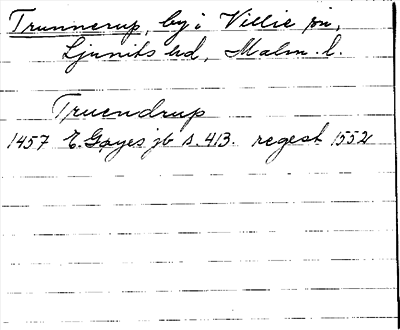 Trunnerup, by i Villie sn,
Ljunits hd, Malm. l.
Truendrup
1457 E. Gøyes jb s. 413. regest 1552